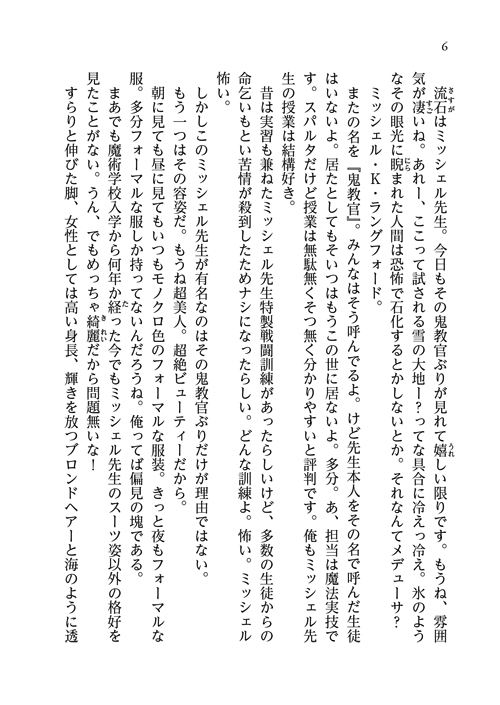 6
流石はミッシェル先生。今日もその鬼教官ぶりが見れて嬉しい限りです。もうね、雰囲
気が凄いね。あれー、ここって試される雪の大地ー?ってな具合に冷えっ冷え。氷のよう
なその眼光に睨まれた人間は恐怖で石化するとかしないとか。それなんてメデューサ?
ミッシェル・K・ラングフォード。
またの名を『鬼教官』。みんなはそう呼んでるよ。けど先生本人をその名で呼んだ生徒
はいないよ。居たとしてもそいつはもうこの世に居ないよ。多分。あ、担当は魔法実技で
す。スパルタだけど授業は無駄無くそつ無く分かりやすいと評判です。俺もミッシェル先
生の授業は結構好き。
昔は実習も兼ねたミッシェル先生特製戦闘訓練があったらしいけど、多数の生徒からの
命乞いもとい苦情が殺到したためナシになったらしい。どんな訓練よ。怖い。ミッシェル
怖い。
しかしこのミッシェル先生が有名なのはその鬼教官ぶりだけが理由ではない。
もう一つはその容姿だ。もうね超美人。超絶ビューティーだから。
朝に見ても昼に見てもいつもモノクロ色のフォーマルな服装。きっと夜もフォーマルな
服。多分フォーマルな服しか持ってないんだろうね。俺ってば偏見の塊である。
まあでも魔術学校入学から何年か経った今でもミッシェル先生のスーツ姿以外の格好を
見たことがない。うん、でもめっちゃ綺麗だから問題無いな!
すらりと伸びた脚、女性としては高い身長、輝きを放つブロンドヘアーと海のように透